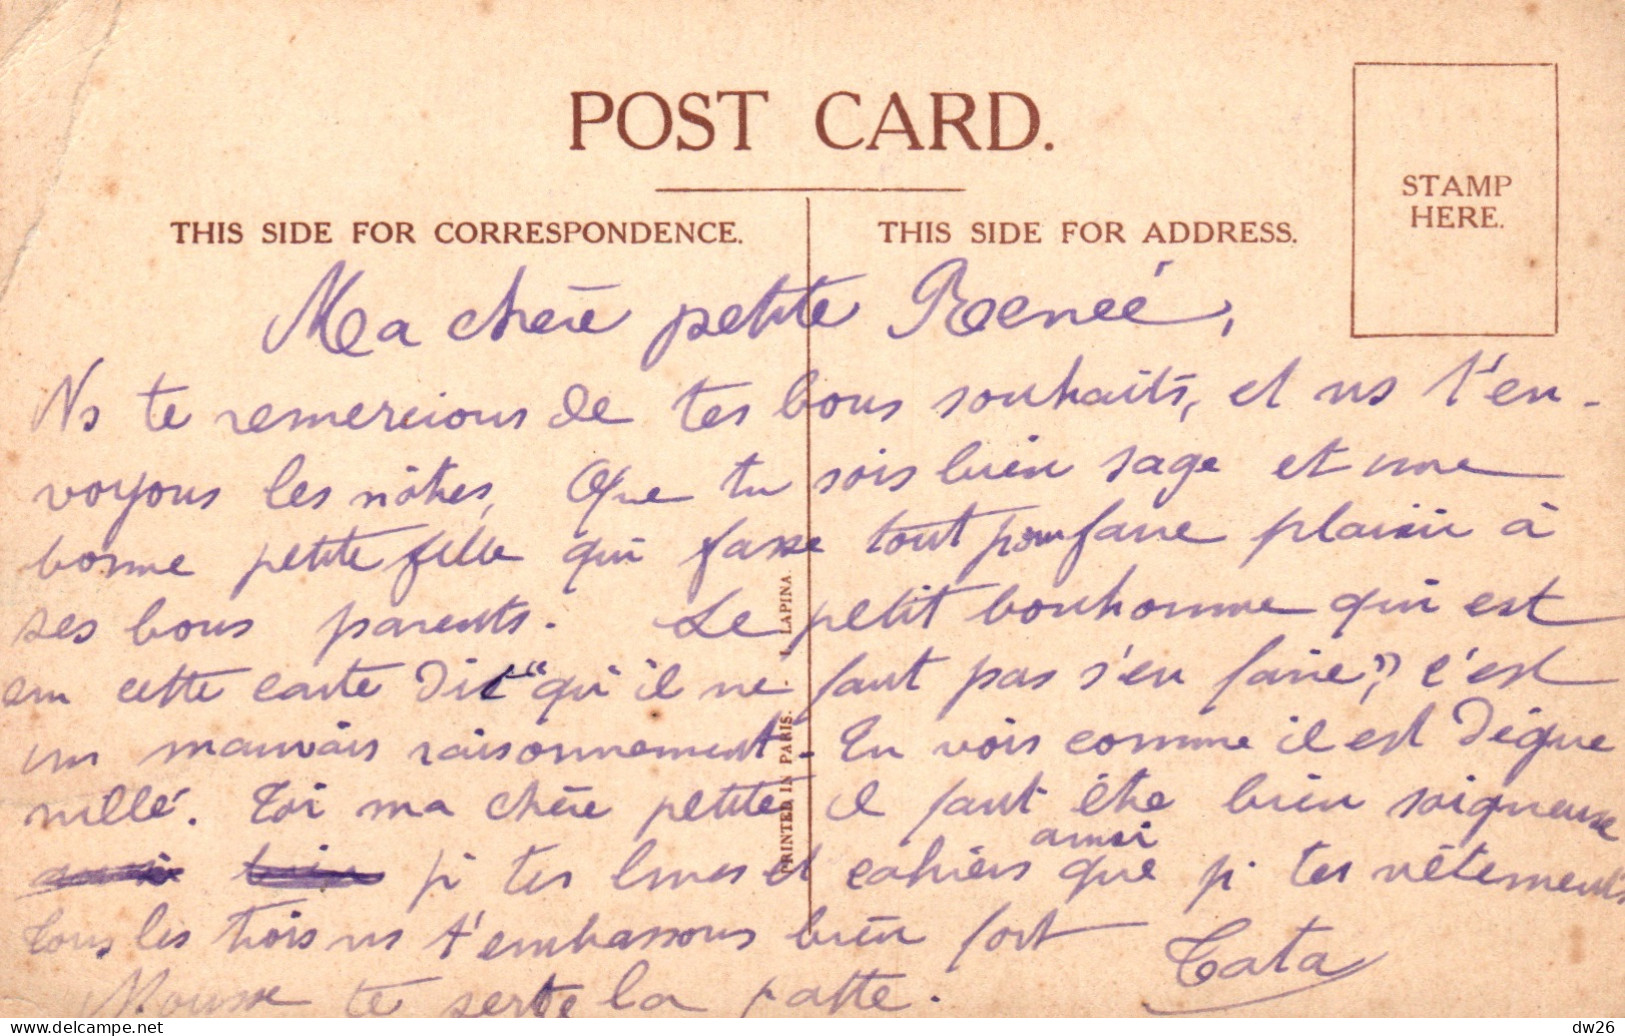 POST CARD.
THIS SIDE FOR CORRESPONDENCE.
THIS SIDE FOR ADDRESS.
STAMP
HERE.
Ma chère petite Renée,
Ns te remercions de tes bons souhaits, et ns t'en-
voyons les nôtres, Que tu sois bien sage et une
bonne petite fille qui fasse tout pour faire plaisir à
ses bons parents. Le petit bonhomme qui est
sur cette carte dit "qu'il ne faut pas s'en faire", c'est
un mauvais raisonnement. Tu vois comme il est dégue
nillé. Toi ma chère petite il faut être bien soigneuse
aussi
pr tes livres et cahiers que pr tes vêtements
Tous les trois ns t'embrassons bien fort
Tata
Mousse te serre la patte.
PRINTED IN PARIS. I. LAPINA.
delcampe.net
dw26